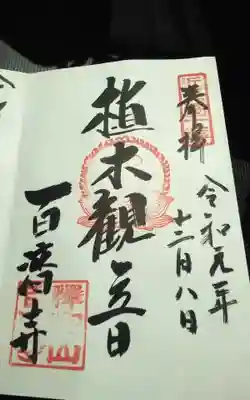 奉拝
令和元年
十二月八日
植木觀音
百濟寺